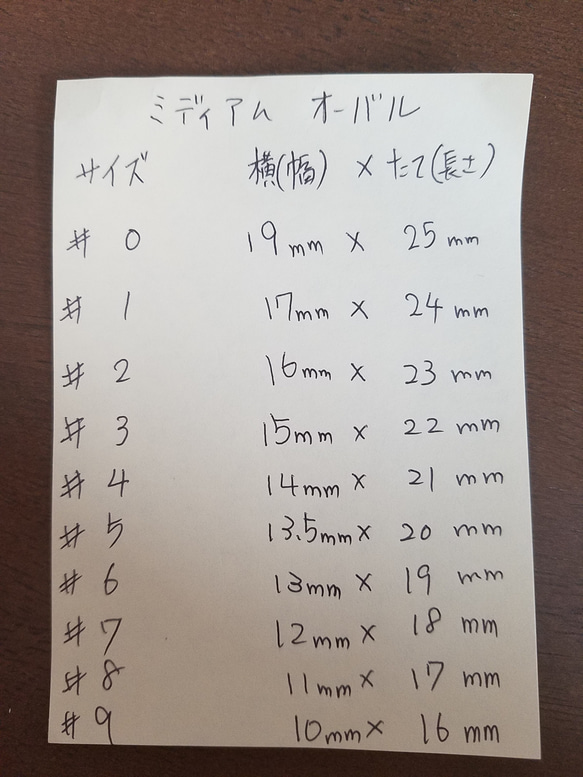 ミディアム オーバル
サイズ 横(幅) × たて(長さ)
# 0 19mm × 25mm
# 1 17mm × 24mm
# 2 16mm × 23mm
# 3 15mm × 22mm
# 4 14mm × 21mm
# 5 13.5mm × 20mm
# 6 13mm × 19mm
# 7 12mm × 18mm
# 8 11mm × 17mm
# 9 10mm × 16mm